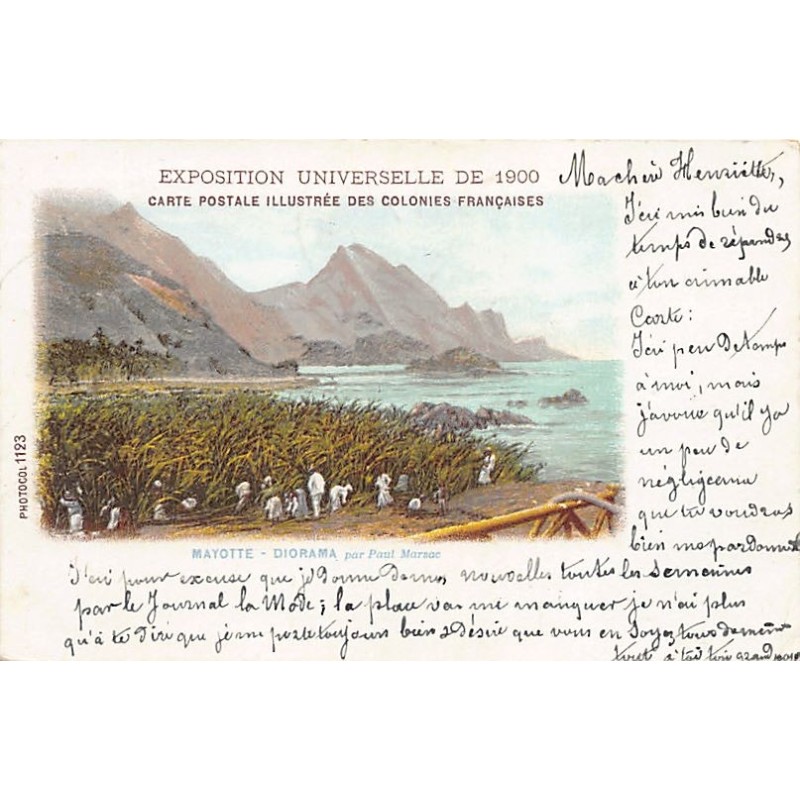 EXPOSITION UNIVERSELLE DE 1900
CARTE POSTALE ILLUSTRÉE DES COLONIES FRANÇAISES
PHOTOCOL 1123
MAYOTTE - DIORAMA par Paul Marsac
Ma chère Henriette,
J'ai mis bien du
temps de répondre
à ton aimable
Carte:
J'ai peu De temps
à moi, mais
j'avoue qu'il ya
un peu de
négligence
que tu voudras
bien me pardonner
J'ai pour excuse que je Donne De mes nouvelles toutes les Semaines
par le Journal la Mode; la place va me manquer je n'ai plus
qu'à te Dire que je me porte toujours bien & Désire que vous en Soyez tous de même
tout à toi